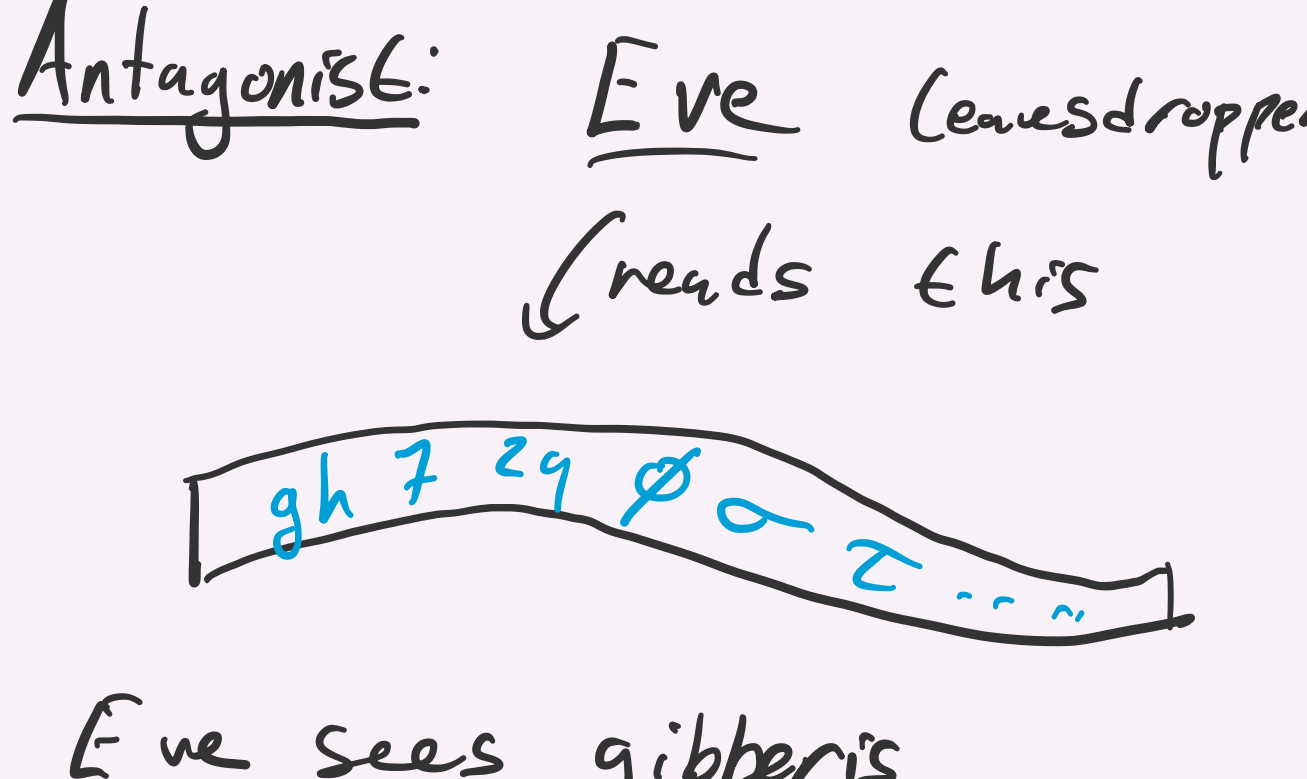 Antagonist: Eve (eavesdropper
reads this
gh 7 2q ø σ τ ...
Eve sees gibberis